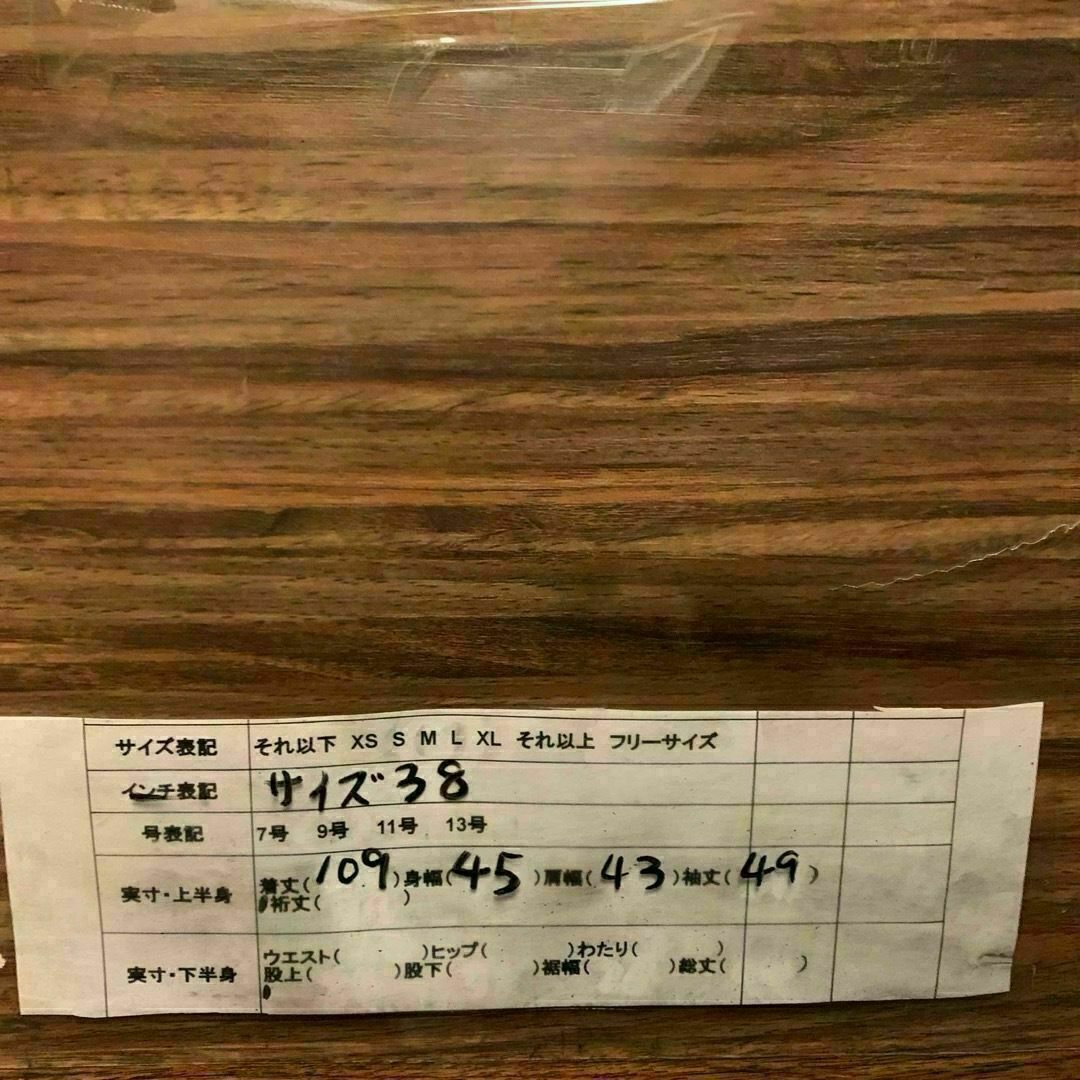 サイズ表記 それ以下 XS S M L XL それ以上 フリーサイズ
インチ表記 サイズ38
号表記 7号 9号 11号 13号
実寸・上半身 着丈(109)身幅(45)肩幅(43)袖丈(49)
裄丈( )
実寸・下半身 ウエスト( )ヒップ( )わたり( )
股上( )股下( )裾幅( )総丈( )